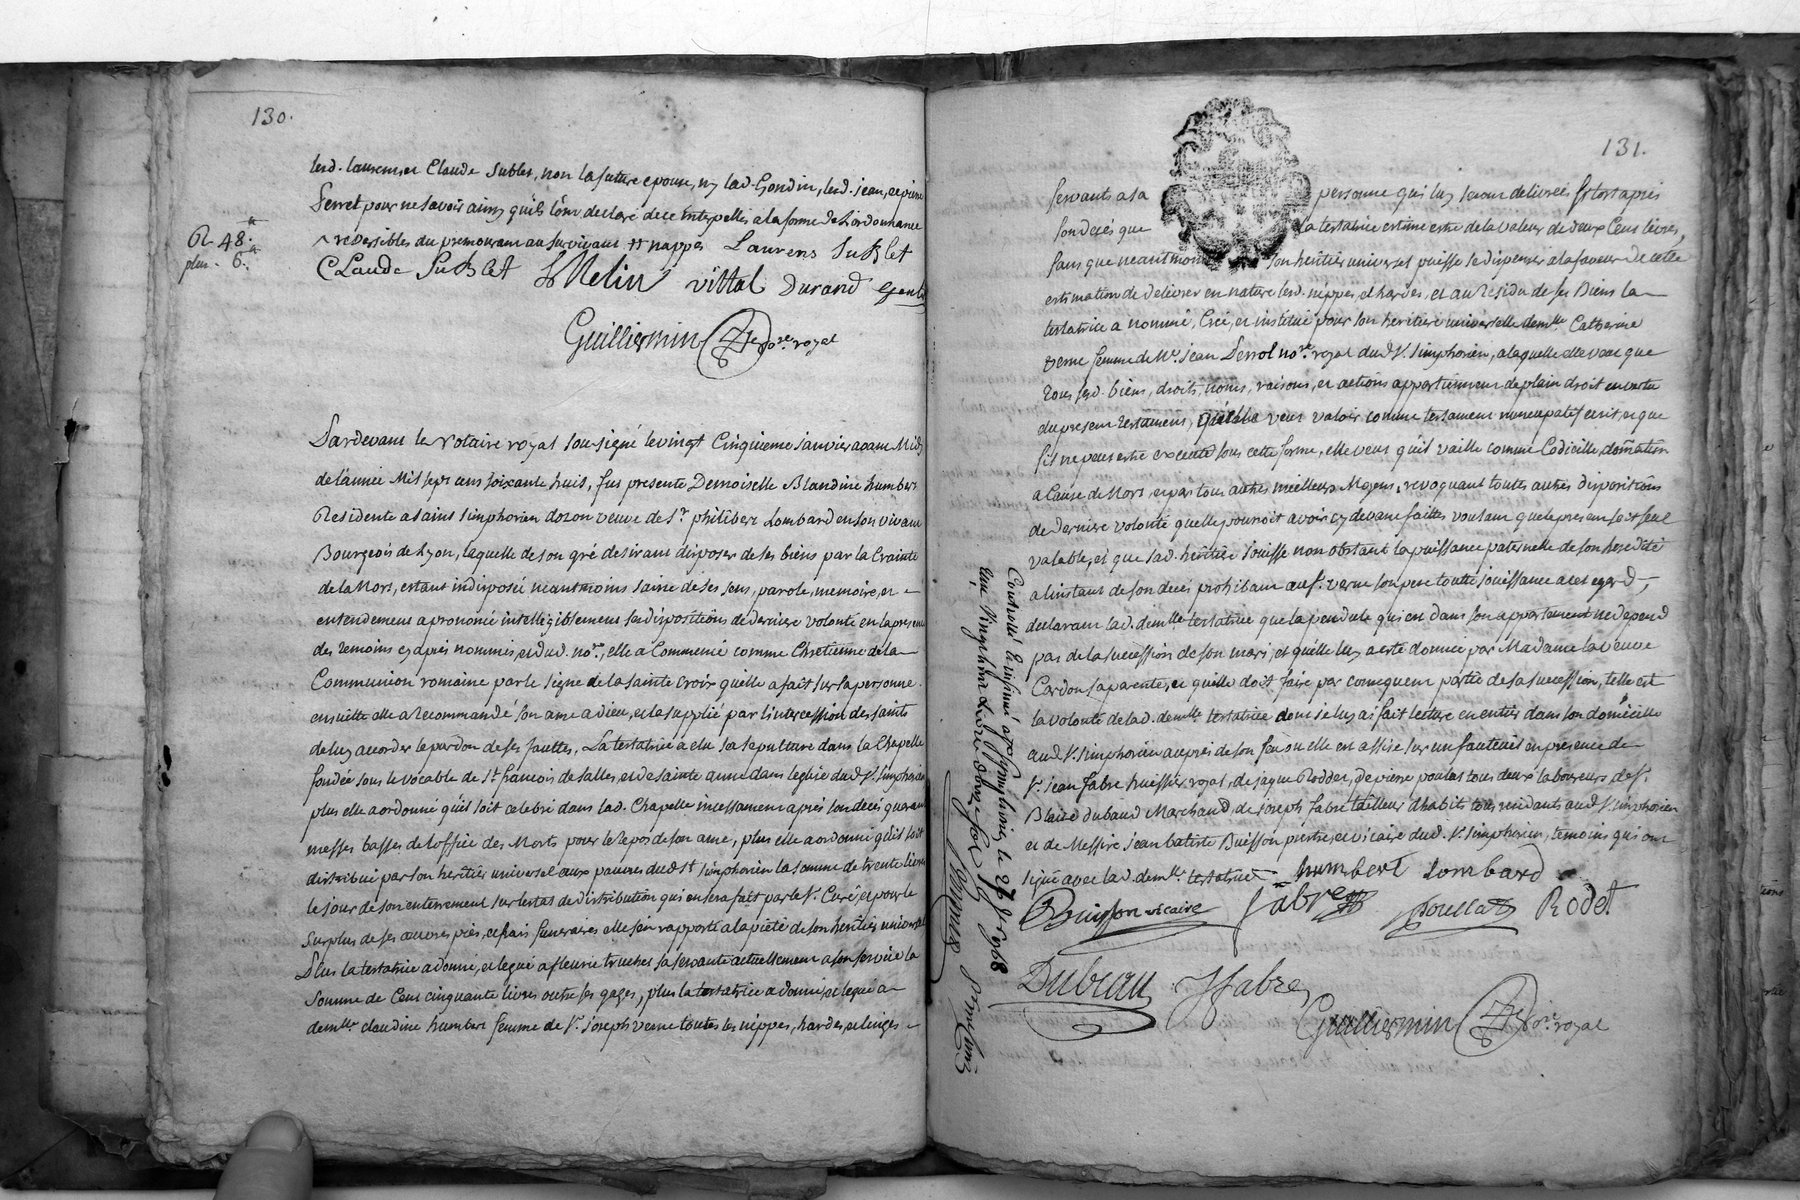 130.
lesd. laurens, et Claude Sublet, non la future epouse, ny lad. Gondin, lesd. jean, et pierre
Serret pour ne savoir ainsy qu'ils l'ont declaré de ce interpellés a la forme de l'ordonnance
reversibles du premourant au survivant nappes Laurens SuBlet
R. 48.
plus. 6.
CLaude SuBLet Melin vittal Durand
Guilliermin no.re royal
Pardevant le Notaire royal soussigné le vingt Cinquieme janvier avant Midy
de l'année Mil sept cens soixante huit, fut presente Demoiselle Blandine humbert
Residente a saint simphorien dozon veuve de Sr. philibert Lombard en son vivant
Bourgeois de Lyon, laquelle de son gré desirant disposer de ses biens par la Crainte
de la Mort, estant indisposée neantmoins saine de ses sens, parole, memoire, et
entendement a prononcé intelligiblement ses dispositions de derniere volonté en la presence
des temoins cy après nommés, et dud. nore., elle a Commencé comme Chretienne de la
Communion romaine par le signe de la sainte croix quelle a fait sur sa personne
ensuitte elle a Recommandé son ame a dieu, et le supplié par l'intercession des saints
de luy accorder le pardon de ses fauttes. La testatrice a elu sa sepulture dans la Chapelle
fondée sous le vocable de St. francois de salles, et de sainte anne dans leglise dud. St. simphorien
plus elle a ordonné qu'il soit celebré dans lad. Chapelle incessament après son decés quarante
messes basses de l'office des Morts pour le Repos de son ame, plus elle a ordonné qu'il soit
distribué par son heritier universel aux pauvres dud. St simphorien la somme de trente livres
le jour de son enterrement sur lestat de distribution qui en sera fait par le Sr. Curé, et pour le
surplus de ses œuvres pies, et frais funeraires elle s'en rapporte a la pieté de son heritier universel
Plus la testatrice a donné, et legué a fleurie truchet sa servante actuellement a son service la
somme de Cent cinquante livres outre ses gages, plus la testatrice a donné, et legué a
demlle. claudine humbert femme de Sr. joseph verne toutes les nippes, hardes, et linges
131.
servants a sa personne qui luy seront delivrées sitost après
son decés que la testatrice estime estre de la valeur de deux Cens livres,
sans que neantmoins son heritier universel puisse se dispenser a la faveur de cette
estimation de delivrer en nature lesd. nippes, et hardes, et au Residu de ses Biens la
testatrice a nommé, Créé, et institué pour son heritiere universelle demlle. Catherine
verne femme de Me. jean Derrol nore. royal dud. St. simphorien, a laquelle elle veut que
tous sesd. biens, droits, noms, raisons, et actions appartiennent de plain droit en vertu
du present testament, qu'elle veut valoir comme testament nuncupatif écrit, et que
s'il ne peut estre executé sous cette forme, elle veut qu'il vaille comme Codicille, donnation
a Cause de Mort, et par tous autres meilleurs Moyens, revoquant toutes autres dispositions
de derniere volonté quelle pourroit avoir cy devant faittes voulant que le present soit seul
valable, et que sad. heritiere jouisse non obstant la puissance paternelle de son heredité
a linstant de son decés prohibant aud. Sr. verne son pere toutte jouissance a cet egard,
declarant lad. demlle testatrice que la pendule qui est dans son appartement ne depend
pas de la succession de son mari, et qu'elle luy a esté donnée par Madame la Veuve
Cardon sa parente, et quelle doit faire par consequent partie de sa succession, telle est
la volonté de lad. demlle testatrice dont je luy ai fait lecture en entier dans son domicille
aud. St. simphorien auprès de son feu ou elle est assise sur un fauteuil en presence de
Sr. jean fabre huissier royal, de jaque Rodder, de pierre poulas tous deux laboureurs de Sr.
Blaise dubaud Marchand de joseph fabre tailleur d'habits tous residants aud. St. simphorien
et de Messire jean batiste Buisson pretre, et vicaire dud. St. simphorien, temoins qui ont
signé avec lad. demlle testatrice humbert Lombard
Buisson vicaire fabre Poullas Rodet
Dubeau Jfabre
Guilliermin no.re royal
Controllé Insinué a st Symphorien le 27 Jer 1768